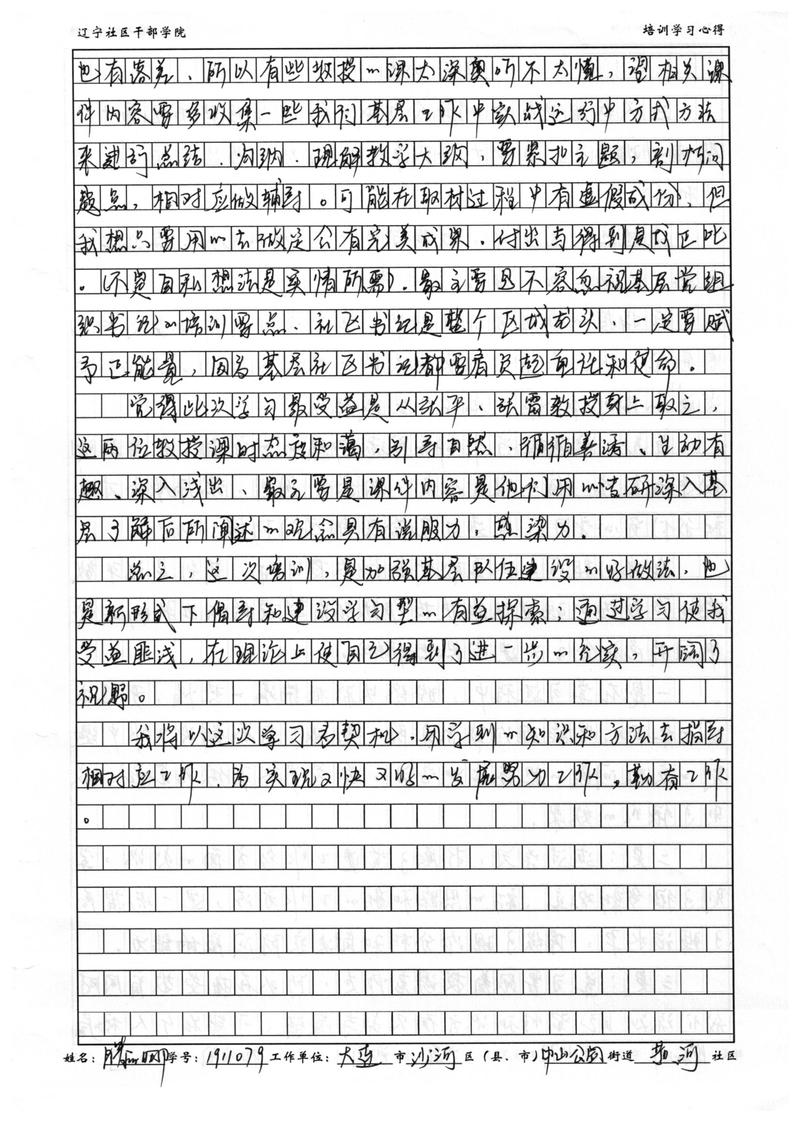 辽宁社区干部学院 培训学习心得
也有落差，所以有些教授的课太深奥听不太懂，望相关课
件内容要多收集一些我们基层工作中实战运行中方式方法
来进行总结、沟纳、理解教学大纲，要紧扣主题，剖析问
题点，相对应做辅导。可能在取材过程中有虚假成份，但
我想只要用心去做定会有完美成果，付出与得到是成正比
。（不是自私想法是实情所需）。最主要是不容忽视基层党组
织书记的培训要点、社区书记是整个区域龙头，一定要赋
予正能量，因为基层社区书记都要肩负起责任和使命。
觉得此次学习最受益是从张平、张雷教授身上取之，
这两位教授课时态度和蔼，引导自然、循循善诱、生动有
趣、深入浅出，最主要是课件内容是他们用心钻研深入基
层了解后所阐述的观念具有说服力，感染力。
总之，这次培训，是加强基层队伍建设的好做法，也
是新形式下倡导和建设学习型的有益探索；通过学习使我
受益匪浅，在理论上使自己得到了进一步的充实，开阔了
视野。
我将以这次学习为契机，用学到的知识和方法去指导
相对应工作，为实现又快又好的发展努力工作，勤有工作
。
姓名： 学号：1911079 工作单位：大连 市 沙河 区（县、市）中山公园 街道 河 社区